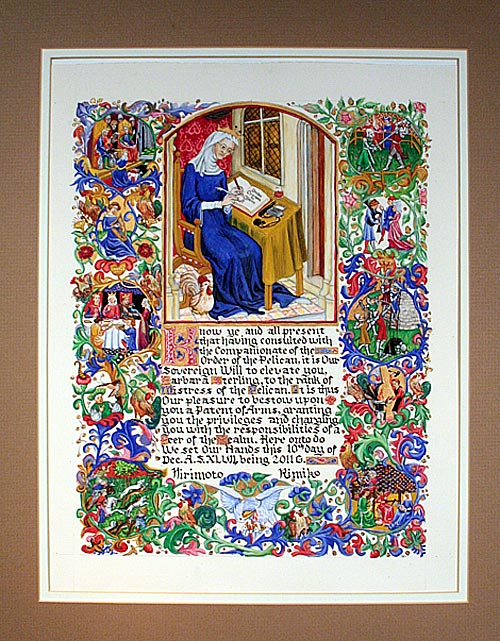 Know ye, and all present
that having consulted with
the Companionate of the
Order of the Pelican, it is Our
Sovereign Will to elevate you,
Barbara Sterling, to the rank of
Mistress of the Pelican. It is thus
Our pleasure to bestow upon
you a Patent of Arms, granting
you the privileges and charging
you with the responsibilities of a
Peer of the Realm. Here onto do
We set Our Hands this 10th day of
Dec. A.S. XLVI, being 2011 G.